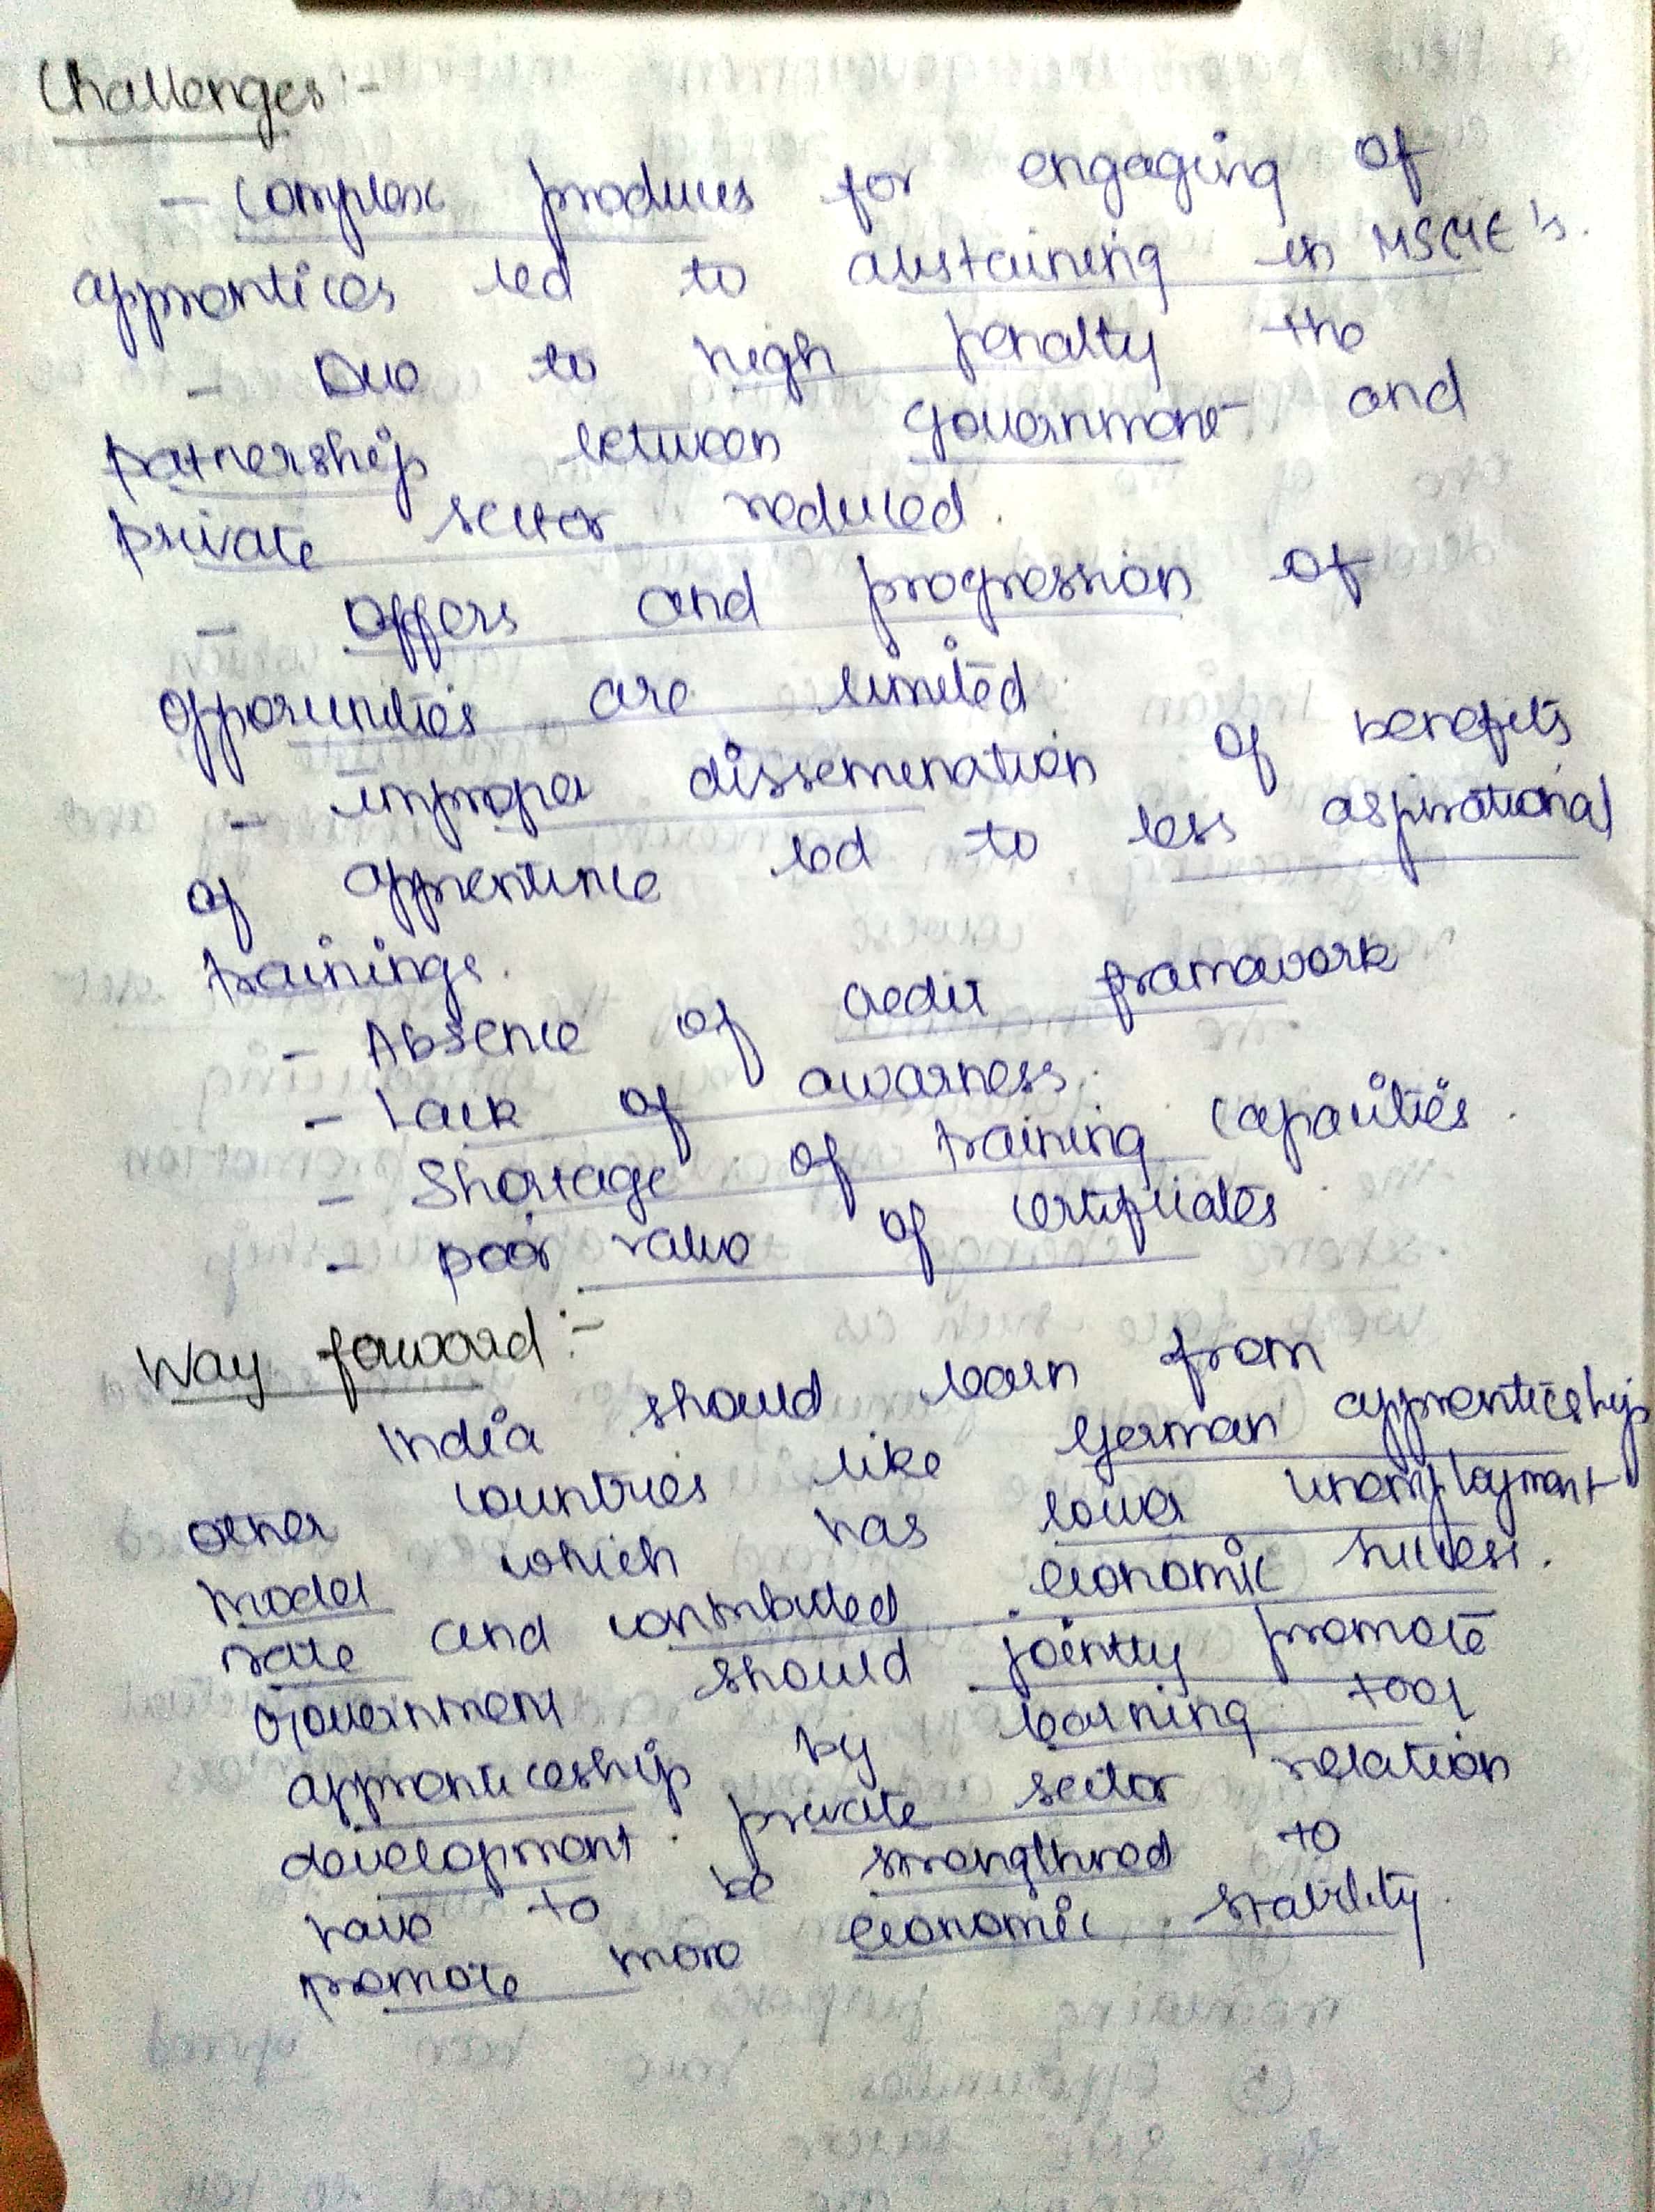 Challenges:-
- Complex produces for engaging of
apprentices led to abstaining in MSME's.
- Due to high penalty the
patnership between Government and
private sector reduced.
- Offers and progression of
opporunities are limited.
- improper dissemenation of benefits
of apprentince led to less aspirational
trainings.
- Absence of credit framework
- Lack of awarness.
- Shortage of training capacities.
- poor value of certificates.
Way forward:-
India should learn from
other countries like German apprenticeship
model which has lower unemployment
rate and contributed economic success.
Government should jointly promote
apprenticeship by learning tool
development. private sector relation
have to be strengthned to
promote more economic stability.